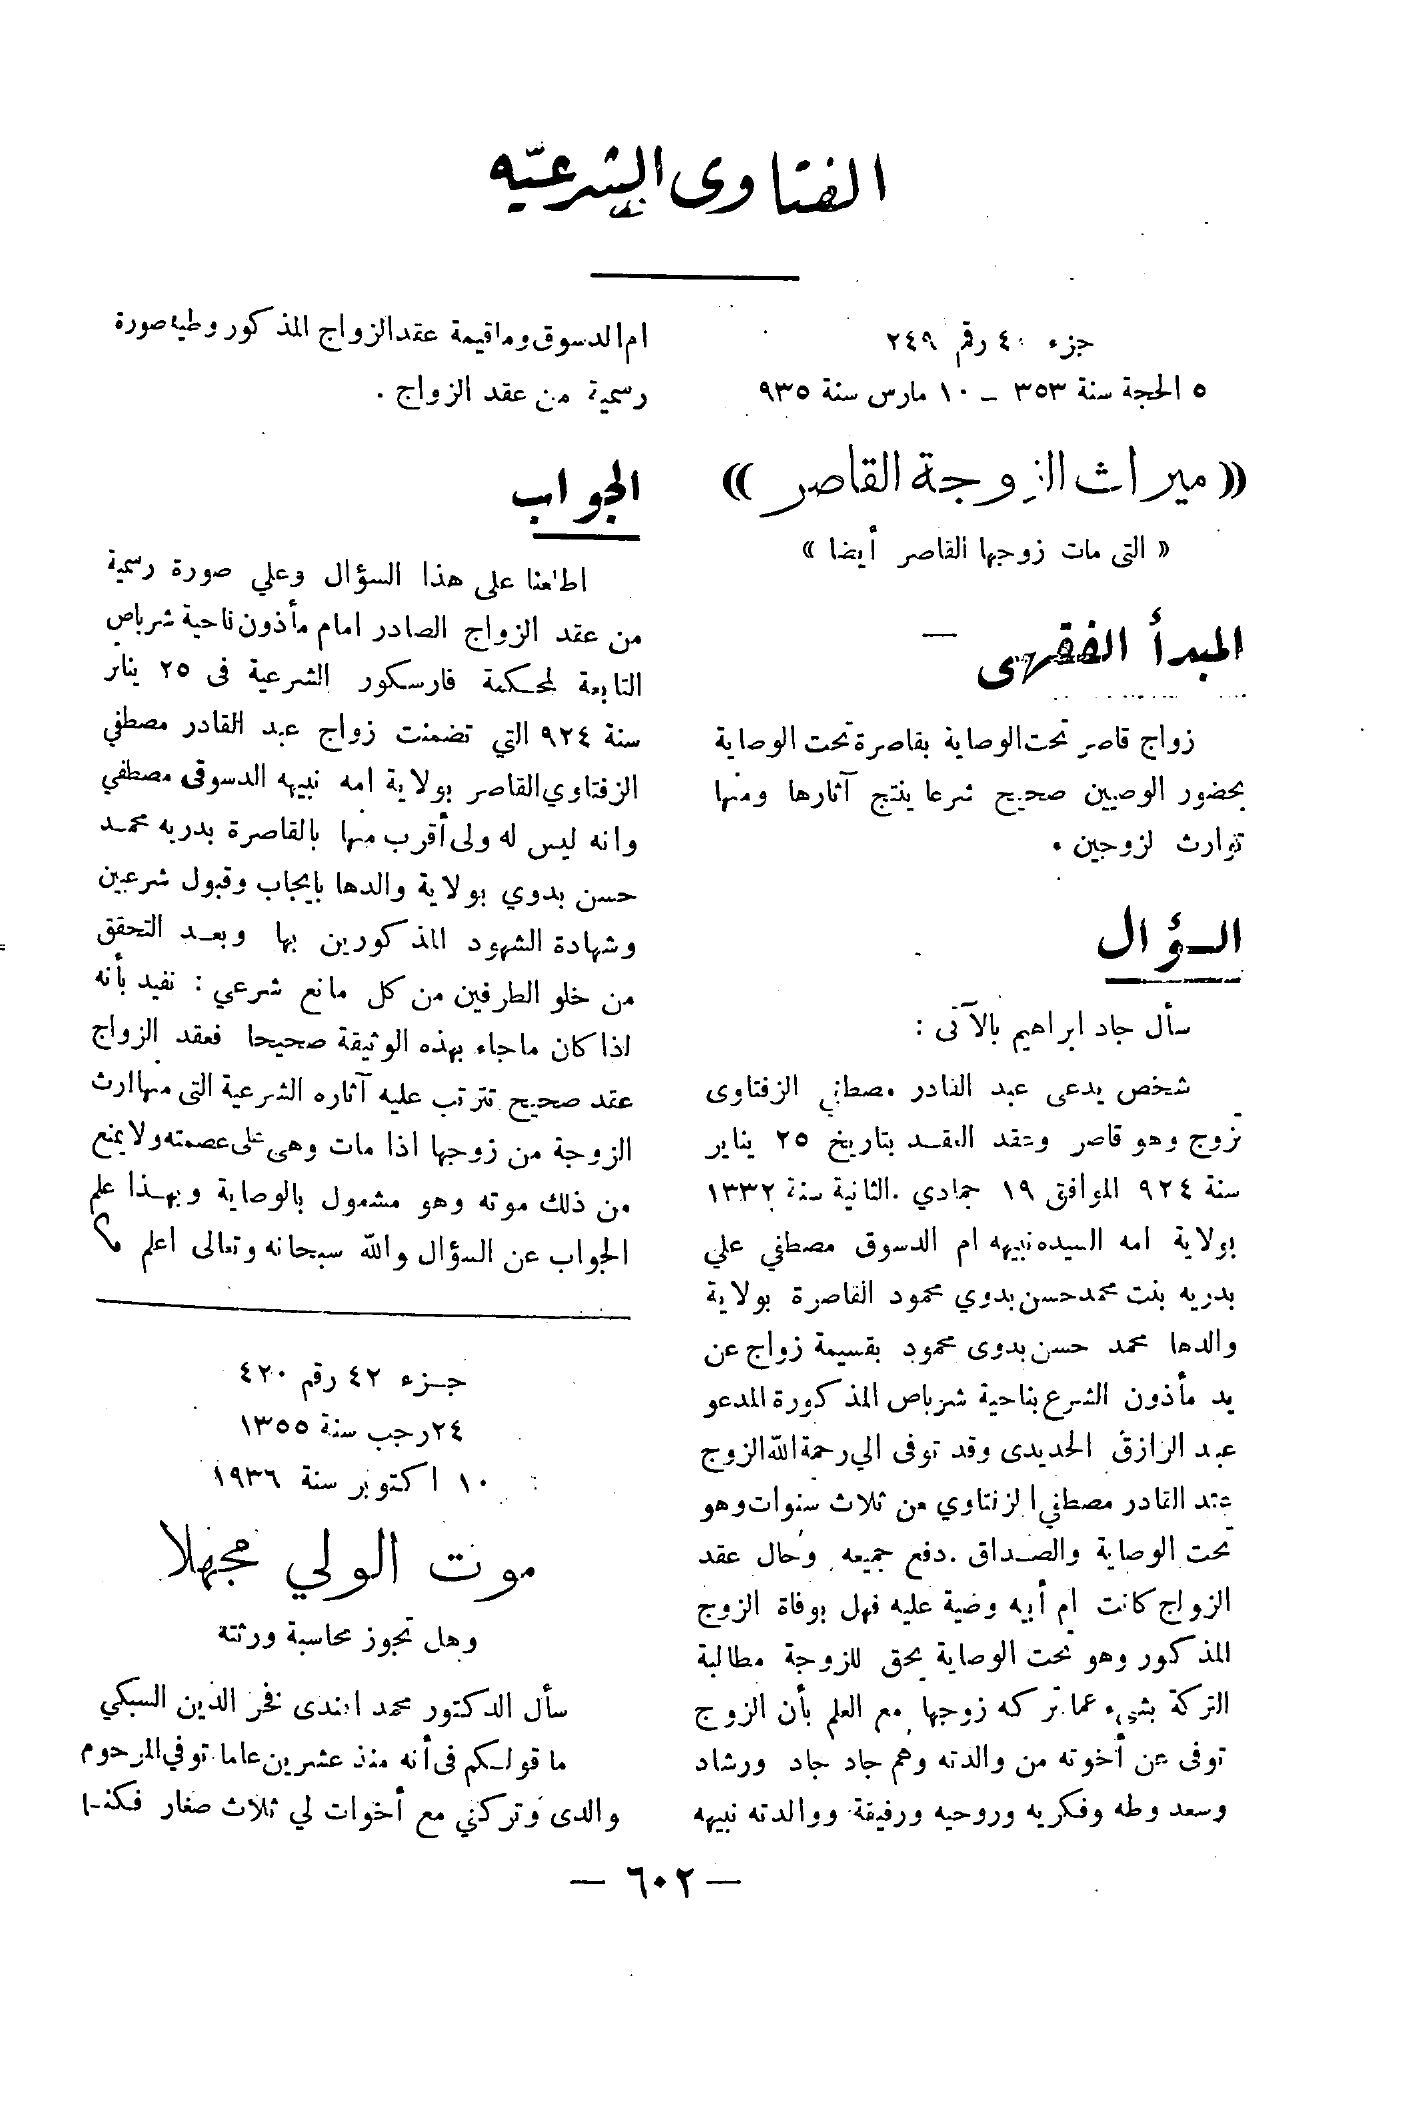 الفتاوى الشرعيّه
جزء ٤٠ رقم ٢٤٩
٥ الحجة سنة ٣٥٣ – ١٠ مارس سنة ٩٣٥
« ميراث الزوجة القاصر »
« التى مات زوجها القاصر أيضا »
المبدأ الفقهى —
زواج قاصر تحت الوصاية بقاصرة تحت الوصاية
بحضور الوصيين صحيح شرعا ينتج آثارها ومنها
توارث لزوجين .
السؤال
سأل جاد ابراهيم بالآتى :
شخص يدعى عبد القادر مصطفى الزفتاوى
تزوج وهو قاصر وعقد العقد بتاريخ ٢٥ يناير
سنة ٩٢٤ الموافق ١٩ جمادي الثانية سنة ١٣٣٢
بولاية امه السيده نبيهه ام الدسوق مصطفي علي
بدريه بنت محمد حسن بدوي محمود القاصرة بولاية
والدها محمد حسن بدوى محمود بقسيمة زواج عن
يد مأذون الشرع بناحية شرباص المذكورة المدعو
عبد الرازق الحديدى وقد توفى الي رحمة الله الزوج
عبد القادر مصطفي الزفتاوي من ثلاث سنوات وهو
تحت الوصاية والصداق دفع جميعه وحال عقد
الزواج كانت ام أبيه وصية عليه فهل بوفاة الزوج
المذكور وهو تحت الوصاية يحق للزوجة مطالبة
التركة بشىء عما تركه زوجها مع العلم بأن الزوج
توفى عن أخوته من والدته وهم جاد جاد ورشاد
وسعد وطه وفكريه وروحيه ورفيقة ووالدته نبيهه
ام الدسوق وما قيمة عقد الزواج المذكور وطيه صورة
رسمية من عقد الزواج .
الجواب
اطلعنا على هذا السؤال وعلي صورة رسمية
من عقد الزواج الصادر امام مأذون ناحية شرباص
التابعة لمحكمة فارسكور الشرعية فى ٢٥ يناير
سنة ٩٢٤ التي تضمنت زواج عبد القادر مصطفي
الزفتاوي القاصر بولاية امه نبيهه الدسوقى مصطفي
وانه ليس له ولى أقرب منها بالقاصرة بدريه محمد
حسن بدوي بولاية والدها بايجاب وقبول شرعين
وشهادة الشهود المذكورين بها وبعد التحقق
من خلو الطرفين من كل مانع شرعي : نفيد بأنه
اذا كان ماجاء بهذه الوثيقة صحيحا فعقد الزواج
عقد صحيح تترتب عليه آثاره الشرعية التى منها ارث
الزوجة من زوجها اذا مات وهى على عصمته ولا يمنع
من ذلك موته وهو مشمول بالوصاية وبهذا علم
الجواب عن السؤال والله سبحانه وتعالى اعلم
جزء ٤٢ رقم ٤٢٠
٢٤ رجب سنة ١٣٥٥
١٠ اكتوبر سنة ١٩٣٦
موت الولي مجهلا
وهل تجوز محاسبة ورثته
سأل الدكتور محمد افندى فخر الدين السبكي
ما قولكم فى أنه منذ عشرين عاما توفي المرحوم
والدى وتركني مع أخوات لي ثلاث صغار فكنا
— ٦٠٢ —